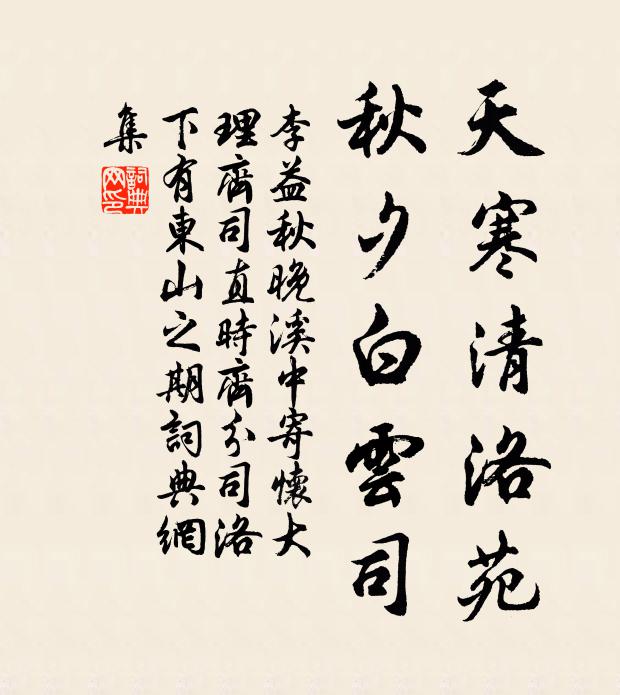 天寒清洛苑
秋夕白雲司
李益秋晚溪中寄懷大
理齊司直時齊分司洛
下有東山之期詞典網
集
詞典
网印